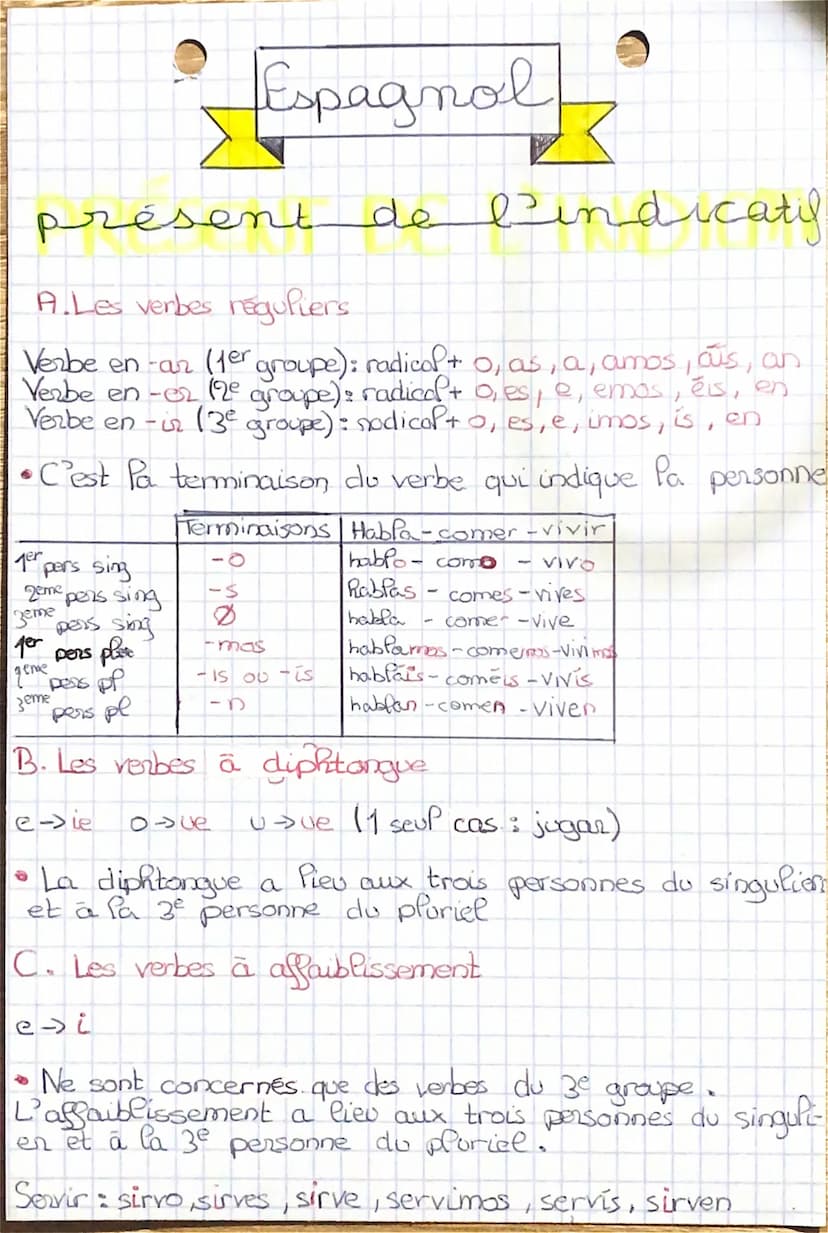 Espagnol
présent de l'indicatif
A. Les verbes réguliers
Verbe en -ar (1er groupe) : radical + o, as, a, amos, áis, an
Verbe en -er (2e groupe) : radical + o, es, e, emos, éis, en
Verbe en -ir (3e groupe) : radical + o, es, e, imos, ís, en
• C'est la terminaison du verbe qui indique la personne
Terminaisons | Habla - comer - vivir
1er pers sing | -o | hablo - como - vivo
2eme pers sing | -s | hablas - comes - vives
3eme pers sing | Ø | habla - comer - vive
1er pers plur | -mos | hablamos - comemos - vivimos
2eme pers pl | -is ou -ís | habláis - coméis - vivís
3eme pers pl | -n | hablan - comen - viven
B. Les verbes à diphtongue
e → ie o → ue u → ue (1 seul cas : jugar)
• La diphtongue a lieu aux trois personnes du singulier
et à la 3e personne du pluriel
C. Les verbes à affaiblissement
e → i
• Ne sont concernés que des verbes du 3e groupe.
L'affaiblissement a lieu aux trois personnes du singuli-
er et à la 3e personne du pluriel.
Servir : sirvo, sirves, sirve, servimos, servís, sirven